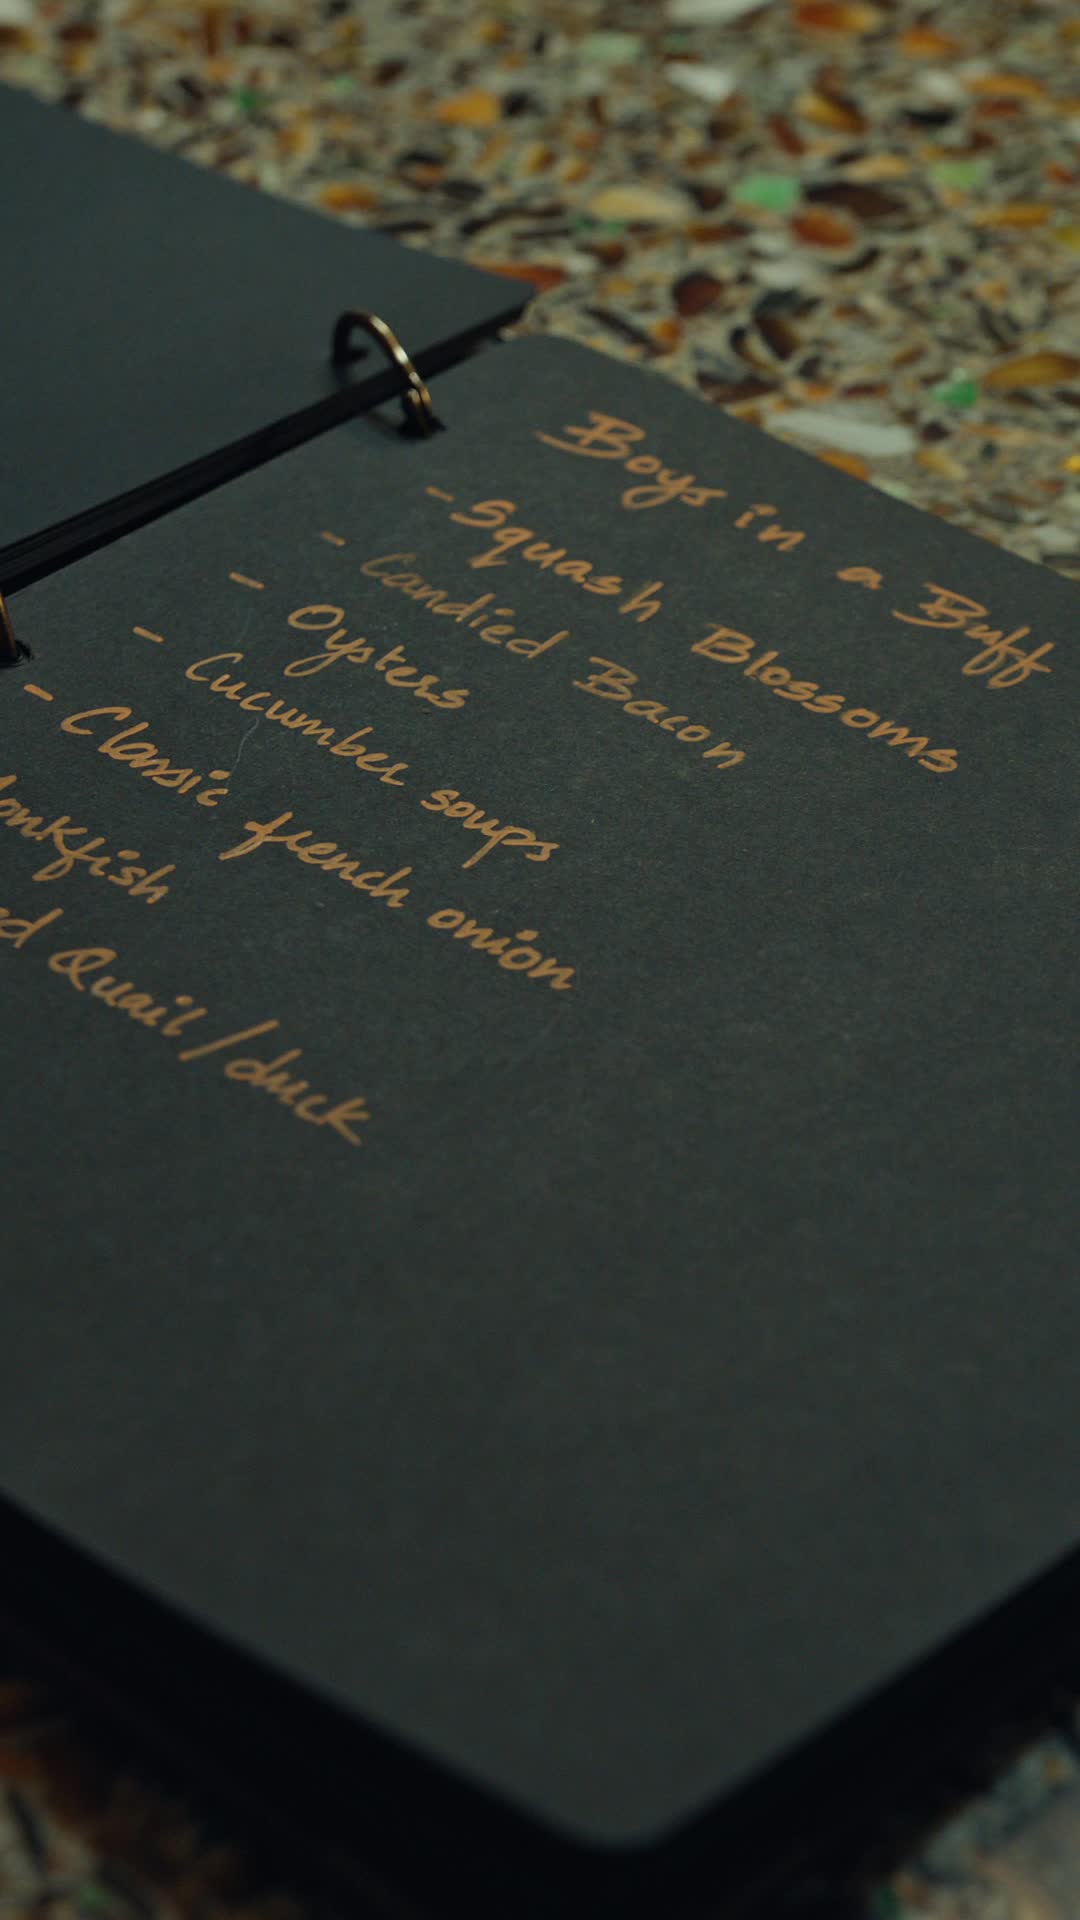 Boys in a Buff
- Squash Blossoms
- Candied Bacon
- Oysters
- Cucumber soups
- Classic french onion
onkfish
ed Quail/duck